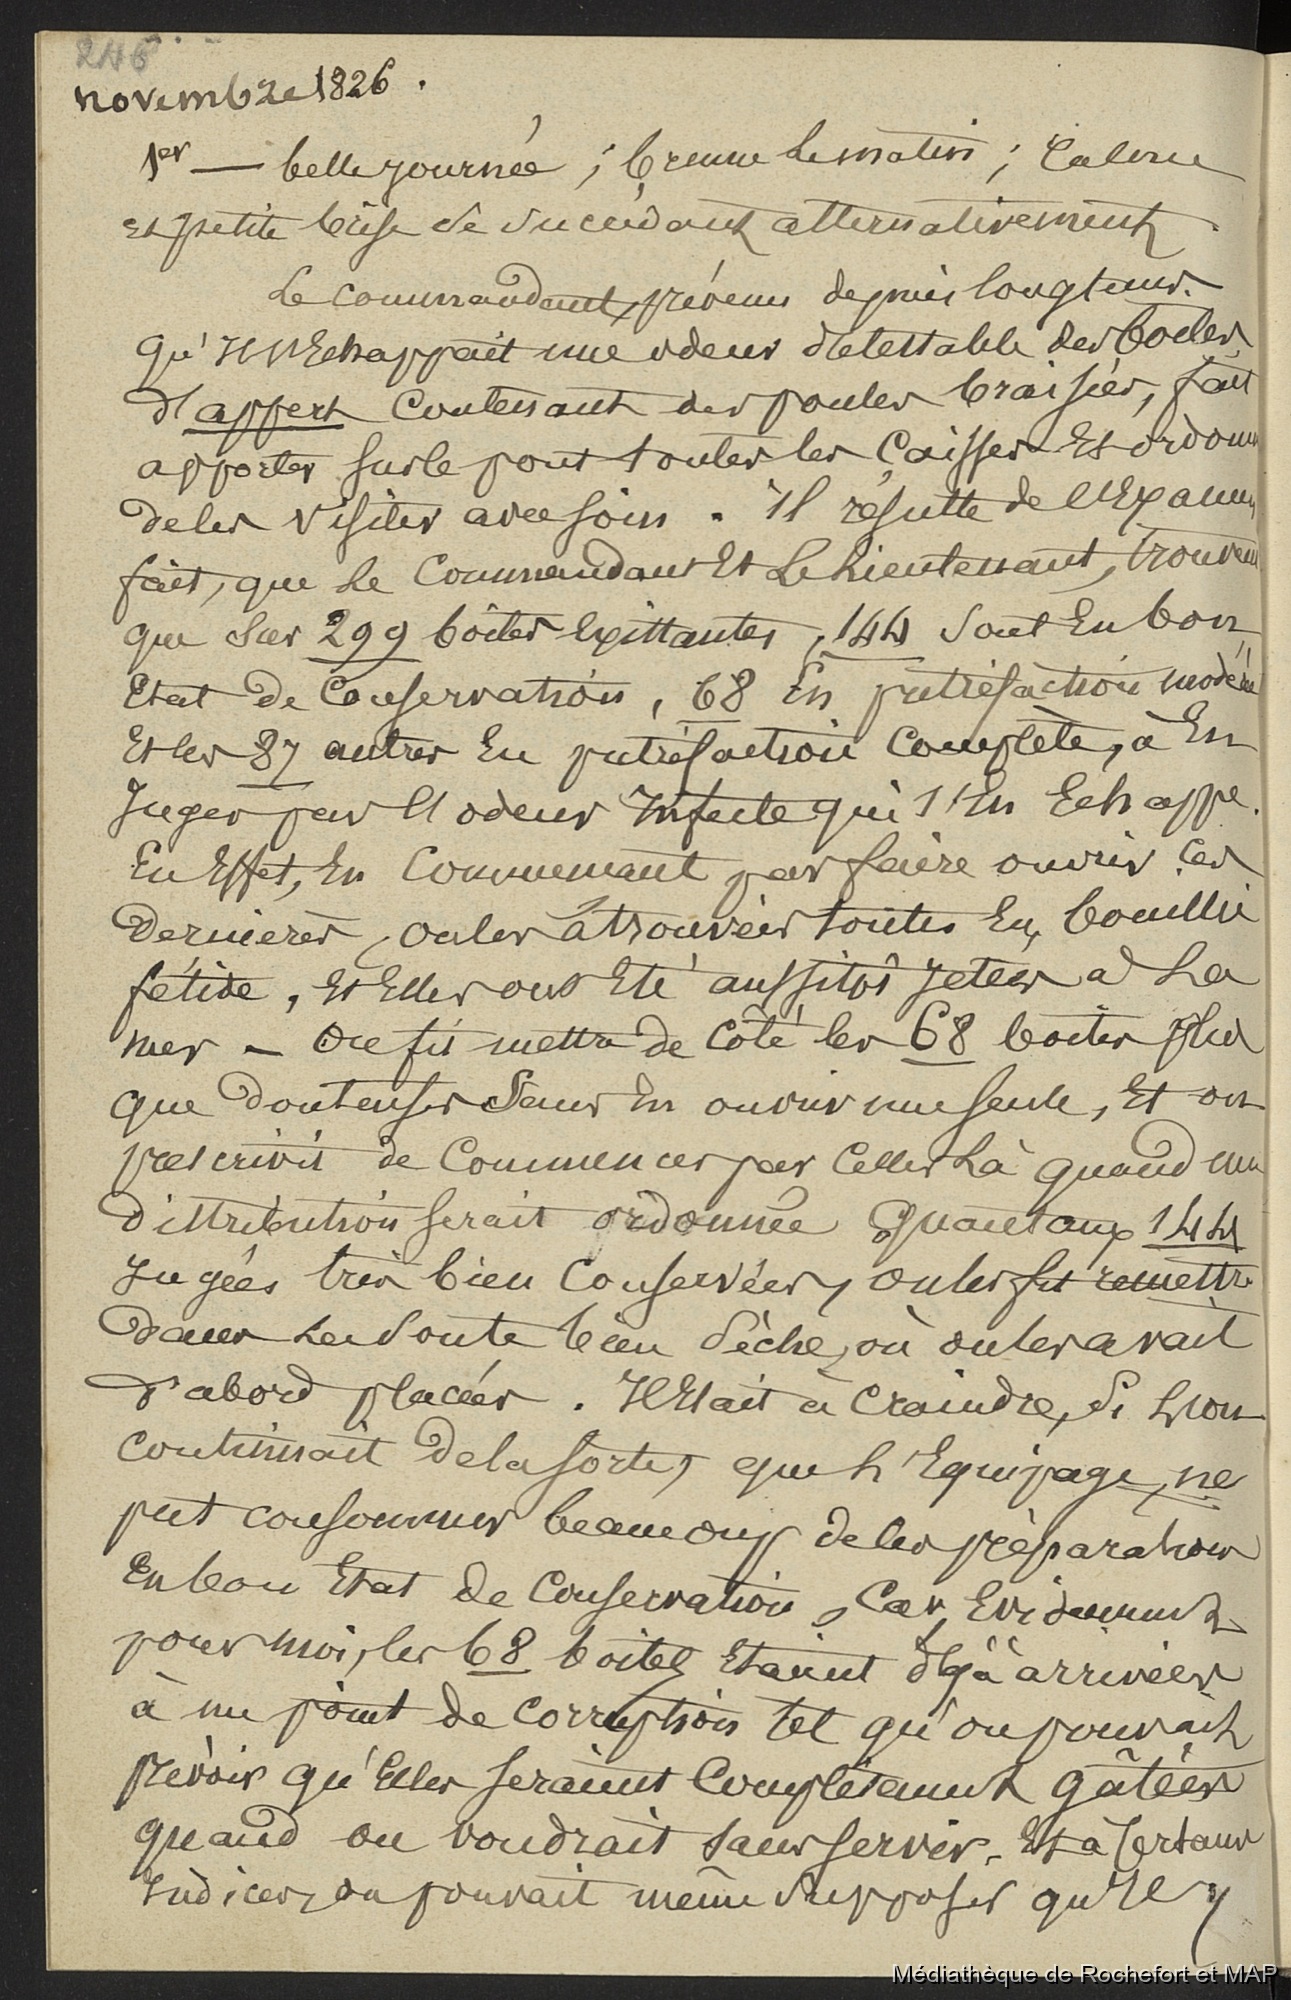 246
novembre 1826.
1er — belle journée ; brume le matin ; Calme
et petite brise se succédant alternativement.
Le commandant, prévenu depuis longtems
qu'Il s'Echappait une odeur détestable des boites
d'appert contenant des poules braisées, fait
apporter sur le pont toutes les Caisses Et ordonne
de les visiter avec soin. il résulte de l'Examen
fait, que le Commandant Et Le Lieutenant, trouvent
que sur 299 boîtes Existantes, 144 sont En bon
Etat de Conservation, 68 En putréfaction modérée
Et les 87 autres En putréfaction Complète, à En
Juger par l'odeur Infecte qui s'En Echappe.
En Effet, En Commencant par faire ouvrir ces
dernières, on les a trouvées toutes En bouillie
fétide, Et Elles ont Eté aussitôt Jetées à La
mer - On fit mettre de Côté les 68 boites plus
que douteuses sans En ouvrir une seule, Et on
prescrivit de Commencer par Celles Là quand une
distribution serait ordonnée Quant aux 144
Jugées très bien Conservées, on les fit remettre
dans La Soute bien Sèche, où on les avait
d'abord placées. Il Etait à Craindre, si L'on
Continuait de la sorte, que L'Equipage, ne
put consommer beaucoup de les préparations
En bon Etat de Conservation, Car, Evidemment
pour moi, les 68 boites Etaient déjà arrivées
à un point de Corruption tel qu'on pouvait
prévoir qu'Elles seraient Complètement gâtées
quand on voudrait s'en servir. Et à Certains
Indices, on pouvait même Supposer qu'Il y
Médiathèque de Rochefort et MAP